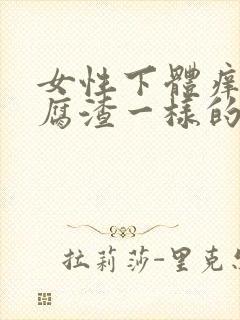 女性下體癢
腐渣一樣的
拉莉莎-里克